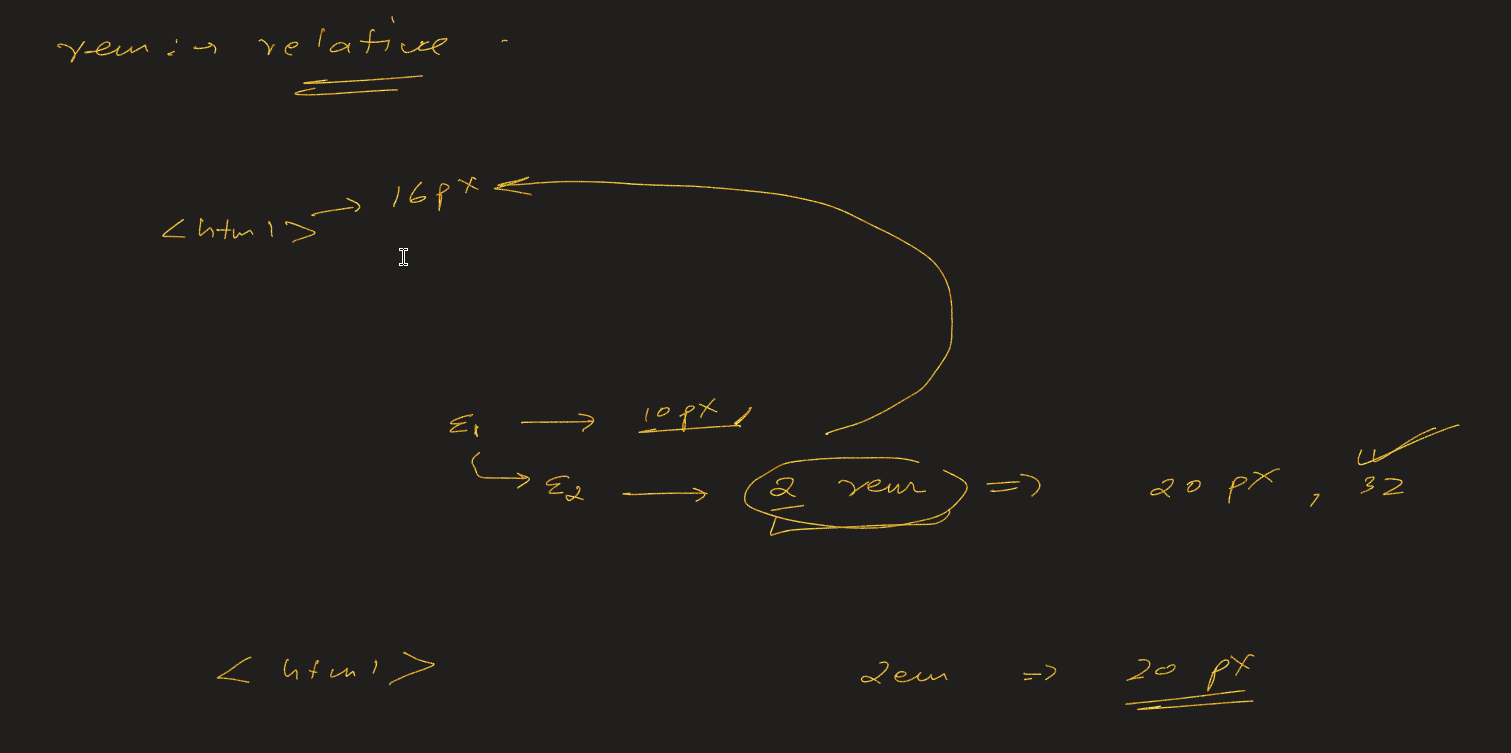 rem : → relative
<html> → 16px
E1 → 10px
E2 → 2 rem => 20px, 32
<html> 2em => 20px